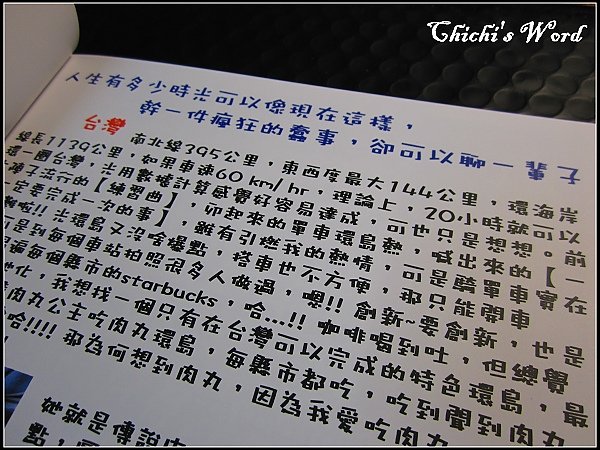 Chichi's Word
人生有多少時光可以像現在這樣，
幹一件瘋狂的蠢事，卻可以聊一輩子
台灣
南北線395公里，東西度最大144公里，環海岸
線長1139公里，如果車速60 km/hr，理論上，20小時就可以
還一圈台灣，光用數據計算感覺好容易達成，可也只是想想。前
子流行的【練習曲】，卯起來的單車環島熱，喊出來的【一
一定要完成一次的事】，雖有引燃我的熱情，可是騎單車實在
!! 光環島又沒啥爆點，搭車也不方便，那只能開車
可是到每個車站拍照很多人做過，嗯!! 創新~要創新，也是
遍每個縣市的starbucks，哈...!! 咖啡喝到吐，但總覺
化，我想找一個只有在台灣可以完成的特色環島，最
肉丸公主吃肉丸環島，每縣市都吃，吃到聞到肉丸
哈!!!! 那為何想到肉丸，因為我愛吃肉丸
她就是傳說中
點，